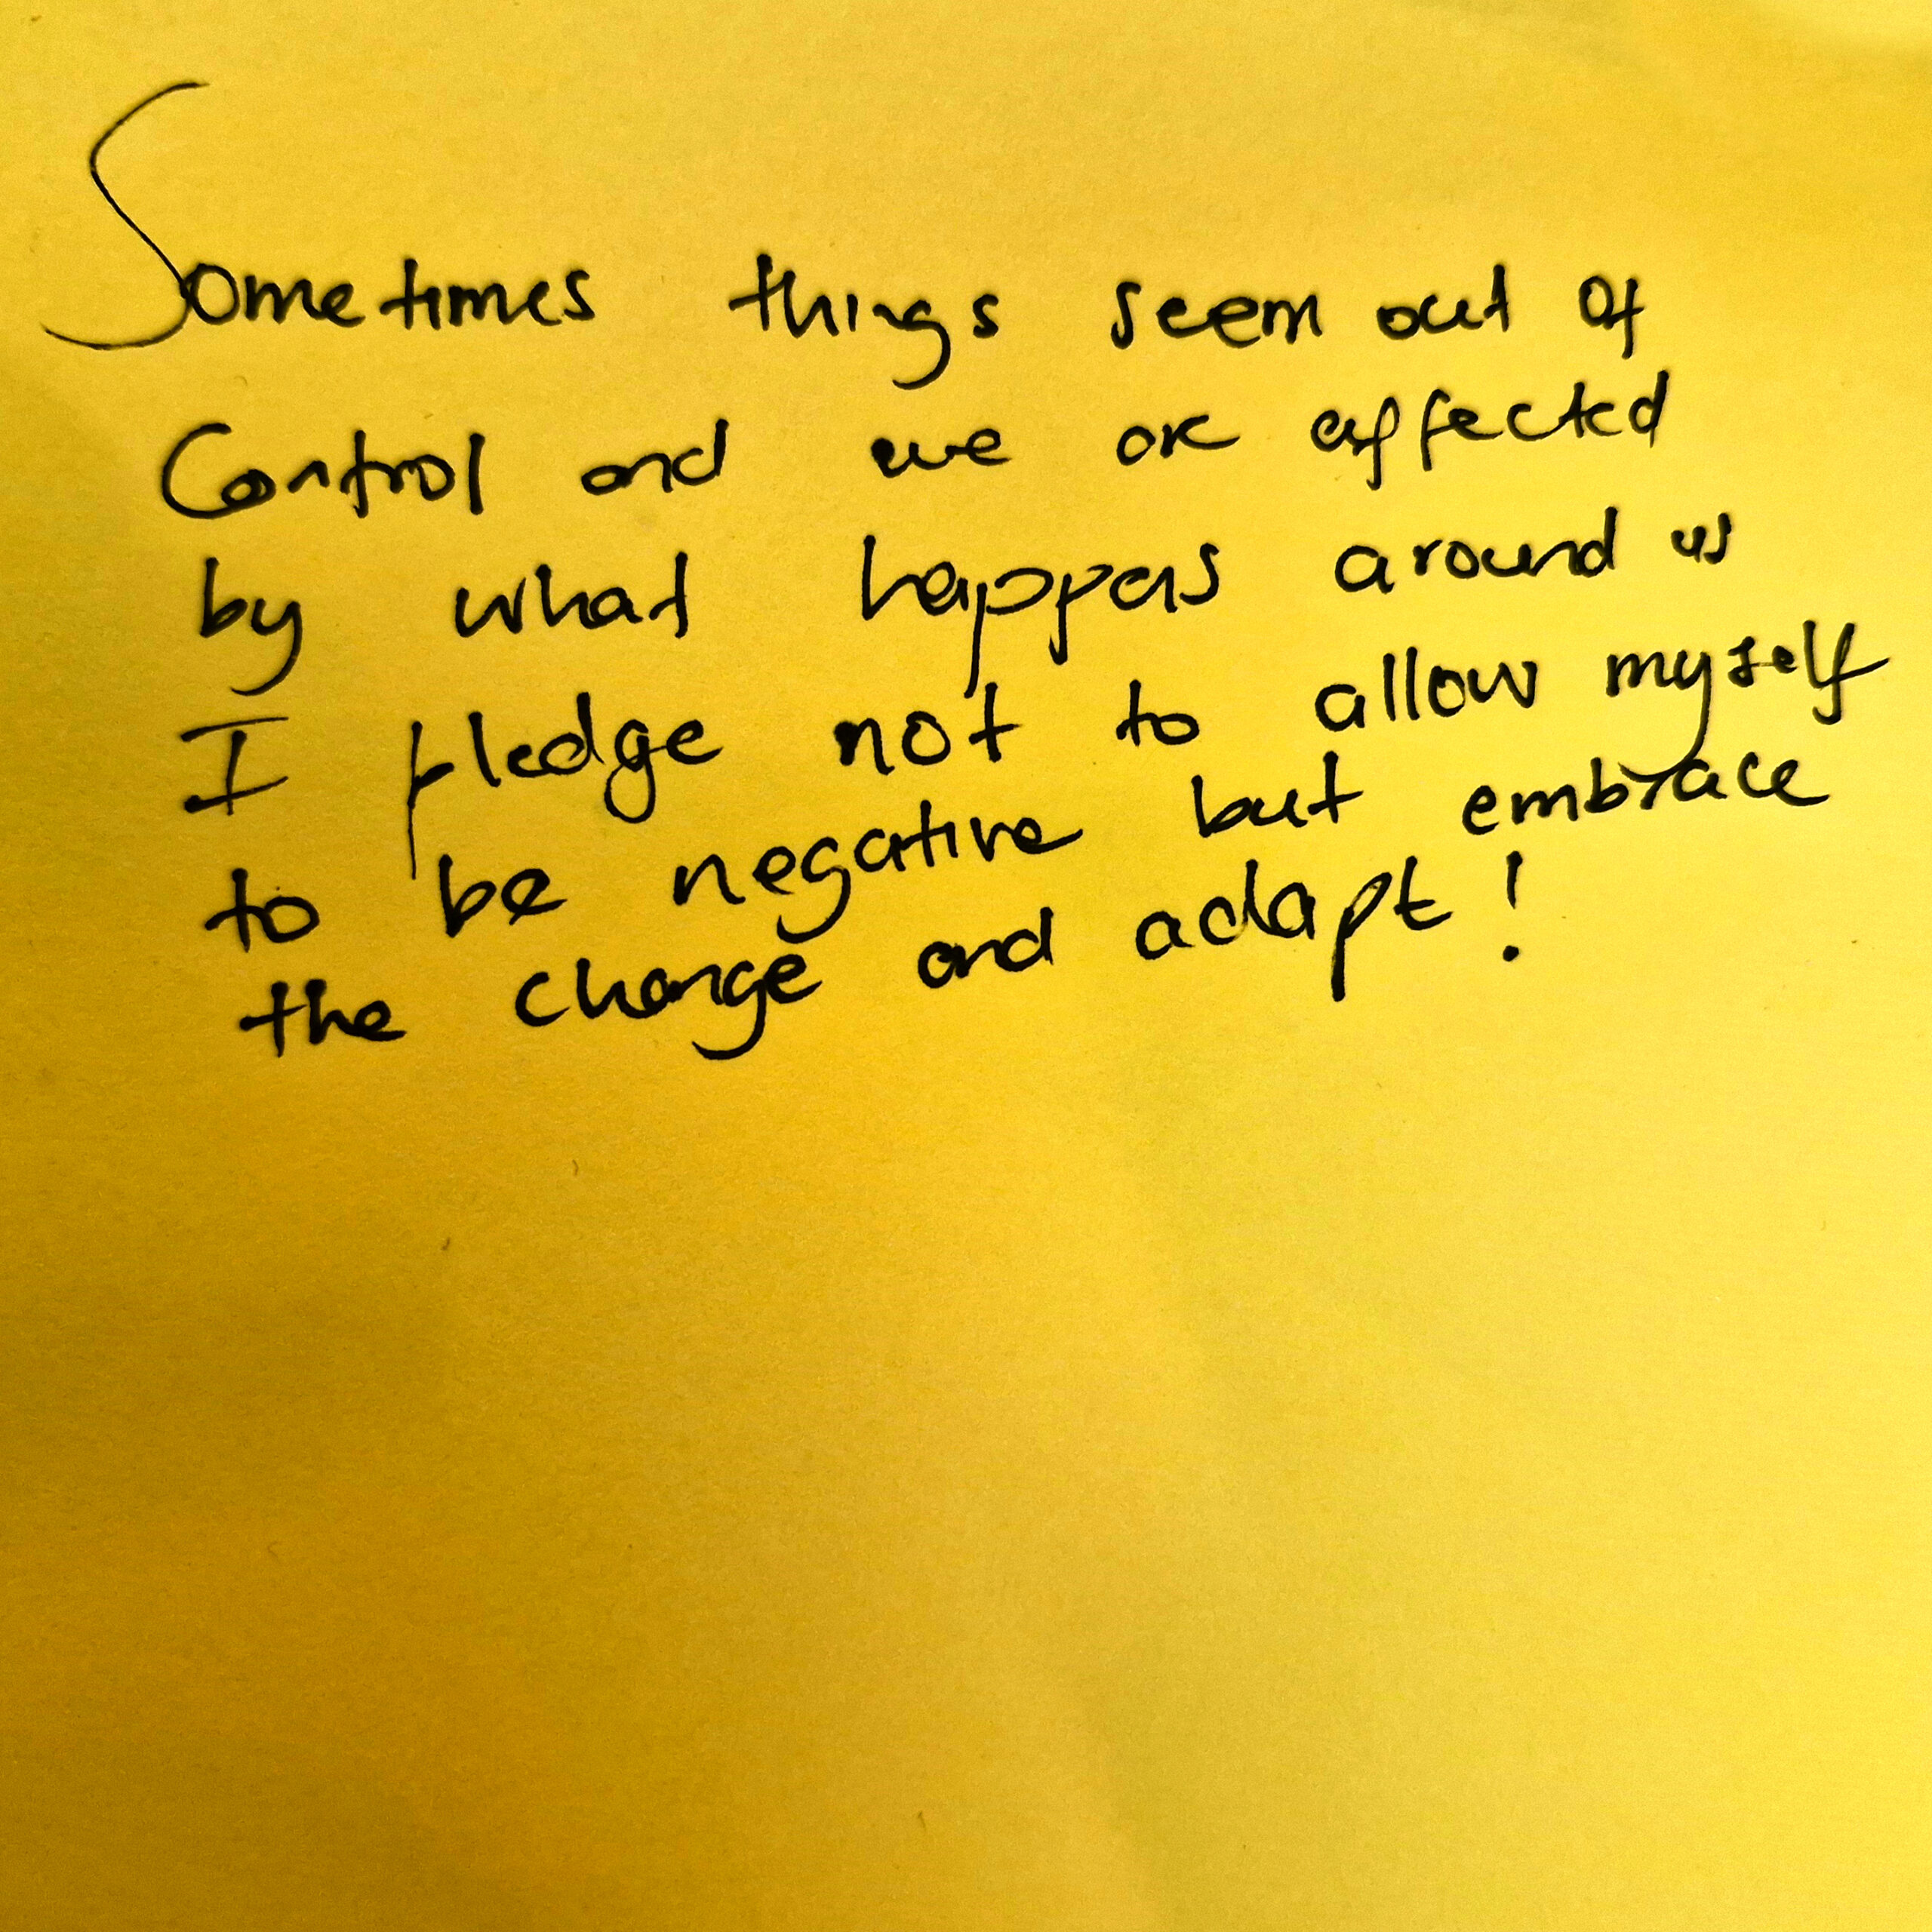 Sometimes things seem out of
Control and we are affected
by what happens around us
I pledge not to allow myself
to be negative but embrace
the change and adapt!